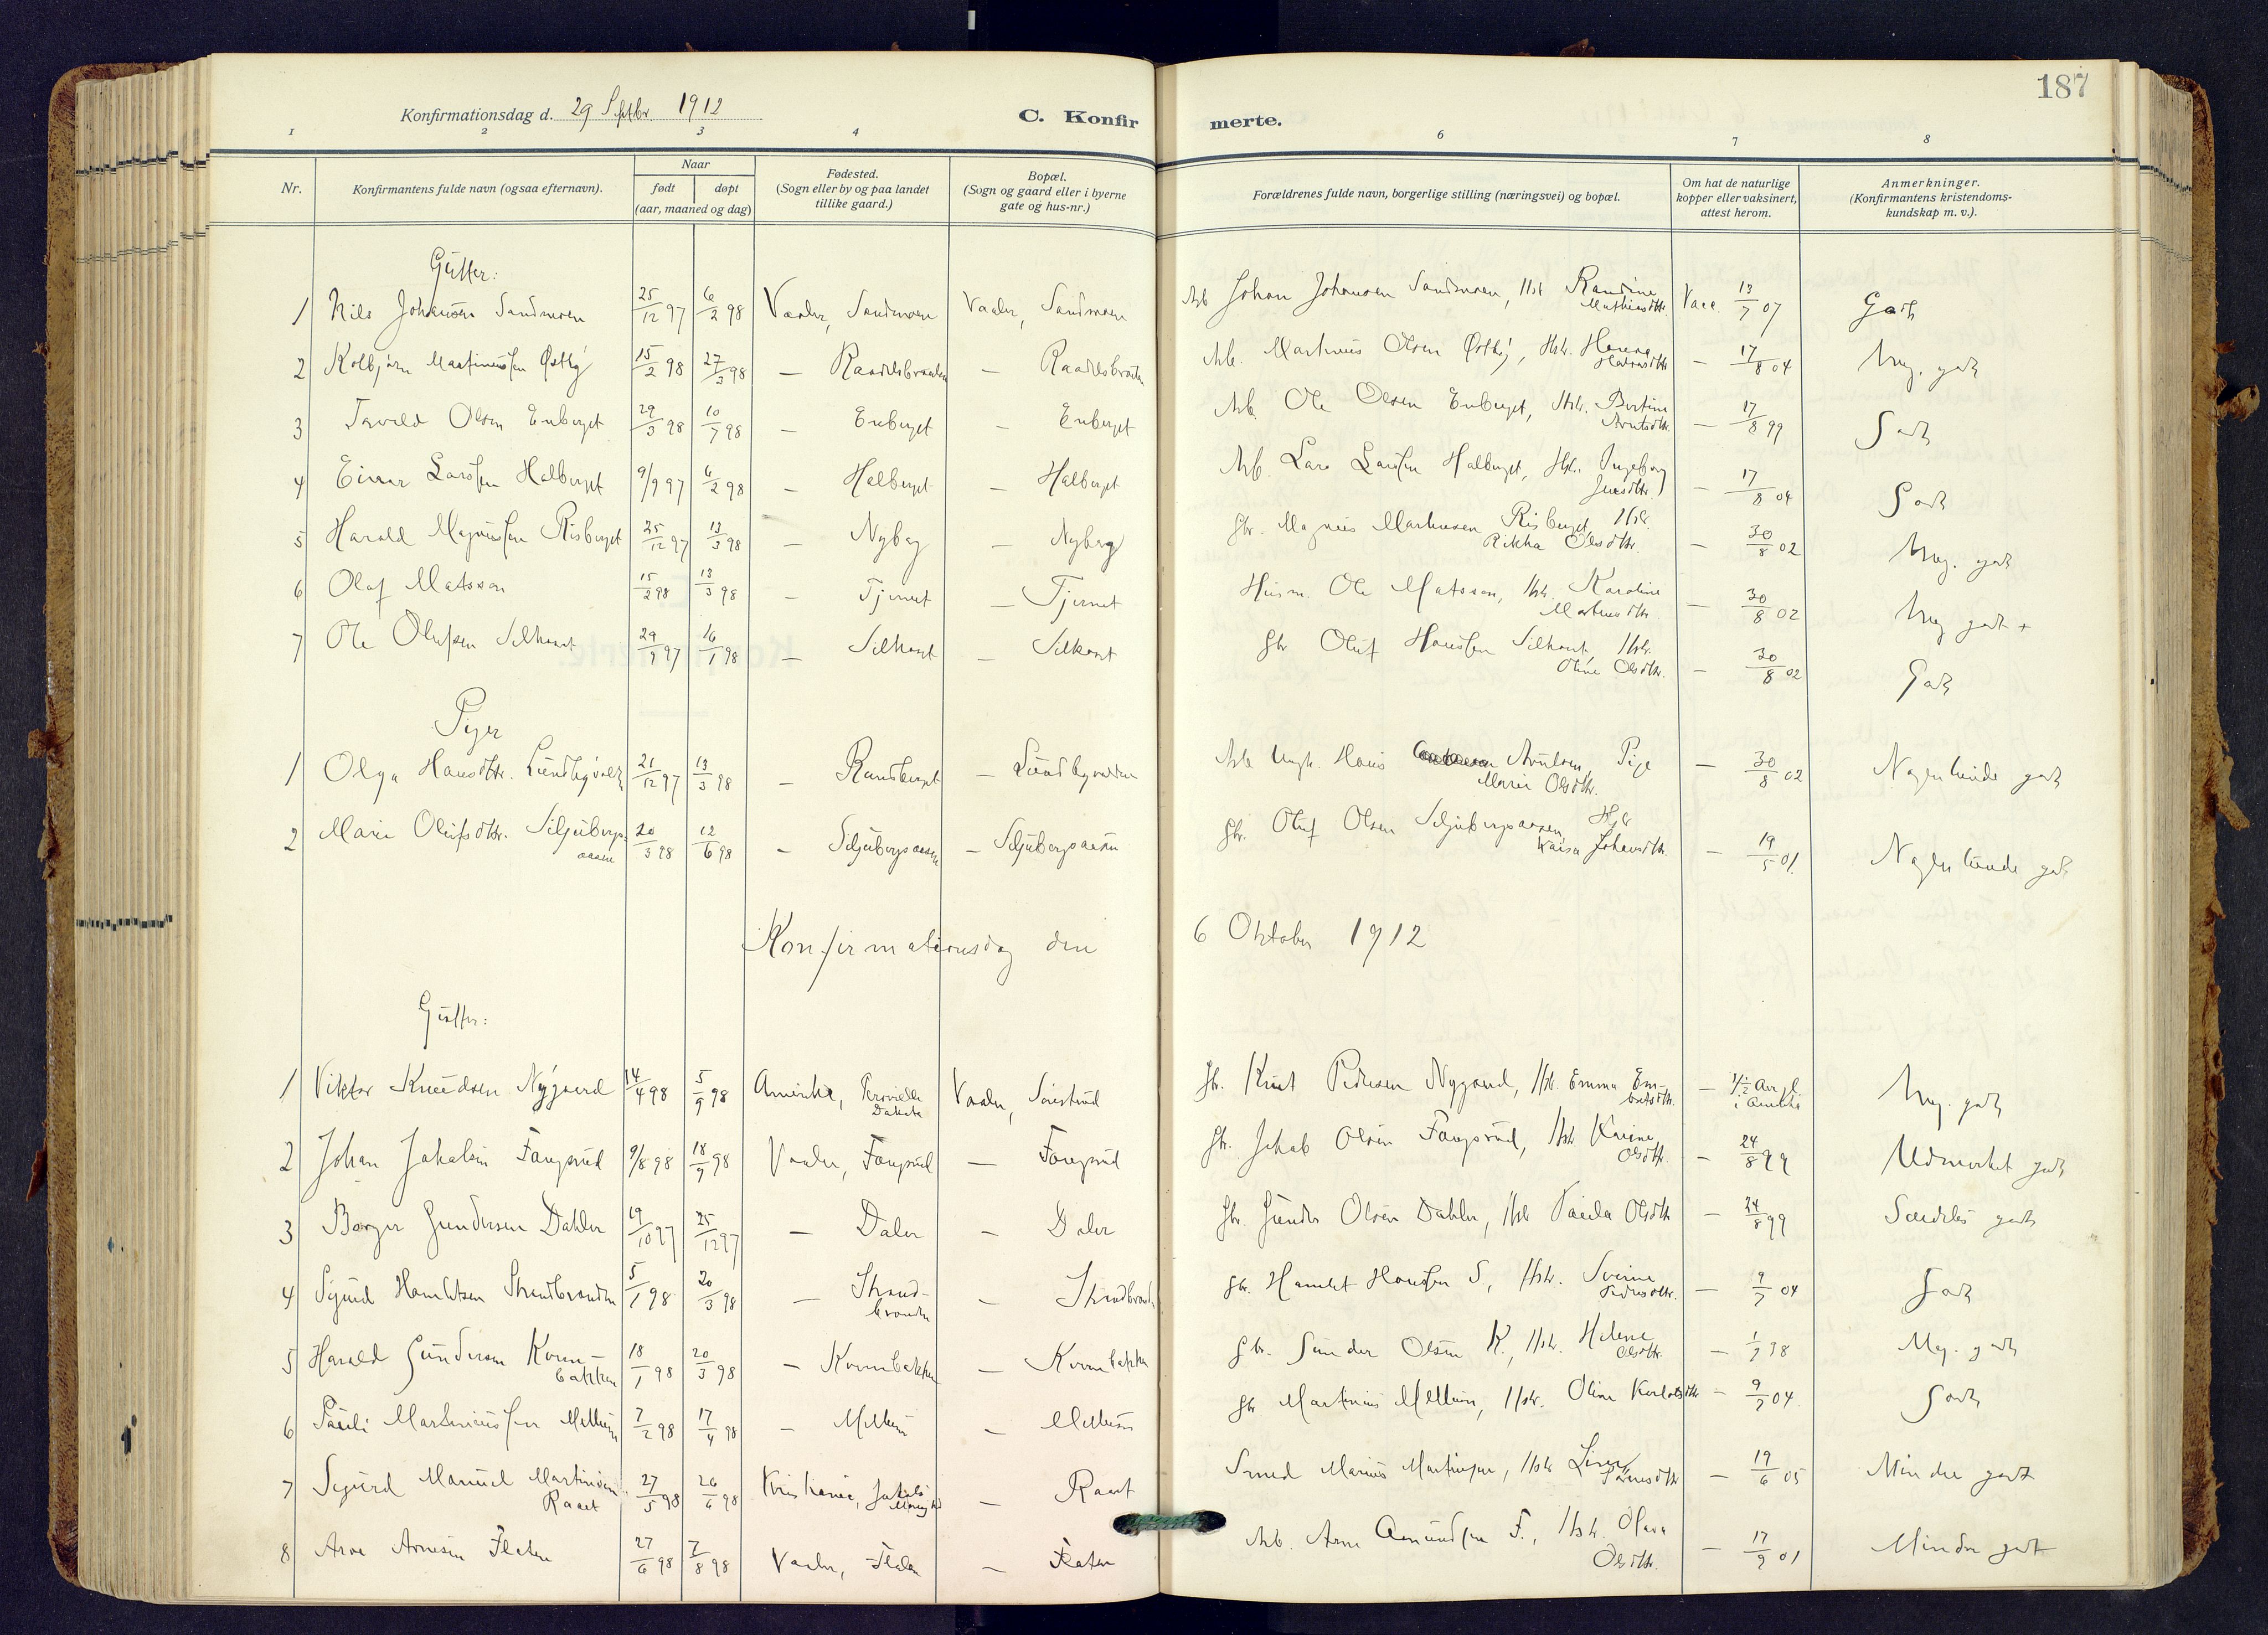 187
Konfirmationsdag d. 29 Septbr. 1912 C. Konfir merte.
1 2 3 4 6 7 8
Nr. Konfirmantens fulde navn (ogsaa efternavn). Naar født døpt (aar, maaned og dag) Fødested. (Sogn eller by og paa landet tillike gaard.) Bopæl. (Sogn og gaard eller i byerne gate og hus-nr.) Forældrenes fulde navn, borgerlige stilling (næringsvei) og bopæl. Om hat de naturlige kopper eller vaksinert, attest herom. Anmerkninger. (Konfirmantens kristendoms-kundskap m. v.).
Gutter:
1 Nils Johansen Sandmoen 25/12 97 6/2 98 Vaaler, Sandmoen Vaaler, Sandmoen Arb Johan Johansen Sandmoen, Hst Randine Mathiasdtr. Vacc. 13/7 07 Godt
2 Kolbjørn Martinussen Østby 15/2 98 27/3 98 — Raadelsbraaten — Raadelsbraaten Arb. Martinus Olsen Østby, Hstr. Halvorsdtr. — 17/8 04 Meg. godt
3 Olsen Enberget 29/3 98 10/7 98 — Enberget — Enberget Arb. Ole Olsen Enberget, Hstr. Bertine Arntsdtr. — 17/8 99 Godt
4 Einar Larssen Halberget 9/9 97 6/2 98 — Halberget — Halberget Arb. Lars Larssen Halberget, Hstr. Ingeborg Jensdtr. — 17/8 04 Godt
5 Harald Magnussen Risberget 25/12 97 13/3 98 — Nyberg — Nyberg Gbr. Magnus Martinsen Risberget, Hstr. Rikka Olsdtr. — 30/8 02 Meg. godt
6 Olaf Matsson 15/2 98 13/3 98 — Tjernet — Tjernet Husm. Ole Matsson, Hstr. Karoline Martinsdtr. — 30/8 02 Meg godt +
7 Ole Olufsen Silkoset 29/9 97 16/1 98 — Silkoset — Silkoset Gbr Oluf Hanssen Silkoset, Hstr. Oline Olsdtr. — 30/8 02 Godt
Piger
1 Olga Hansdtr. Lundbyvold 21/12 97 13/3 98 — Randberget — Lundbyvolden Arb Ungk. Hans Arntsen, Pige Marie Olsdtr. — 30/8 02 Nogenlunde godt
2 Marie Olufsdtr. Siljubergsaasen 20/3 98 12/6 98 — Siljubergsaasen — Siljubergsaasen Gbr. Oluf Olsen Siljubergsaasen, Hstr Kaisa Johansdtr. — 19/5 01. Nogenlunde godt
Konfirmationsdag den 6 Oktober 1912
Gutter:
1 Viktor Knudsen Nygaard 14/4 98 5/9 98 Amerika, Dakota Vaaler, Sørstrud Gbr. Knut Pedersen Nygaard, Hst. Emma Embretsdtr. — 1 1/2 Aar gl. i Amerika Meg. godt
2 Johan Jakobsen Fangsrud 9/8 98 18/9 98 Vaaler, Fangsrud — Fangsrud Gbr. Jakob Olsen Fangsrud, Hstr Karine Olsdtr. — 24/8 99 Udmerket godt
3 Borger Gundersen Dahler 19/10 97 25/12 97 — Daler — Daler Gbr. Gunder Olsen Dahler, Hstr Paula Olsdtr — 24/8 99 Særdeles godt
4 Sigurd Hamletsen Strandbraaten 5/1 98 20/3 98 — Strandbraaten — Strandbraaten Gbr. Hamlet Hanssen S., Hstr. Sverine Pedersdtr. — 9/7 04 Godt
5 Harald Gundersen Kvernbakken 18/1 98 20/3 98 — Kvernbakken — Kvernbakken Gbr. Gunder Olsen K., Hstr. Helene Olsdtr. — 1/7 98 Meg. godt
6 Pauli Martiniussen Mellum 7/2 98 17/4 98 — Mellum — Mellum Gbr Martinius Mellum, Hstr. Oline Karlotsdtr — 9/7 04 Godt
7 Sigurd Manuel Martinsen Raaet 27/5 98 26/6 98 Kristiania, Jakobs Menighed — Raaet Smed Marius Martinsen, Hstr — 19/6 05 Mindre godt
8 Arve Arnesen Flaten 27/6 98 7/8 98 Vaaler, Flaten — Flaten Arb. Arne Amundsen F., Hstr. Olava Olsdtr. — 17/9 01 Mindre godt